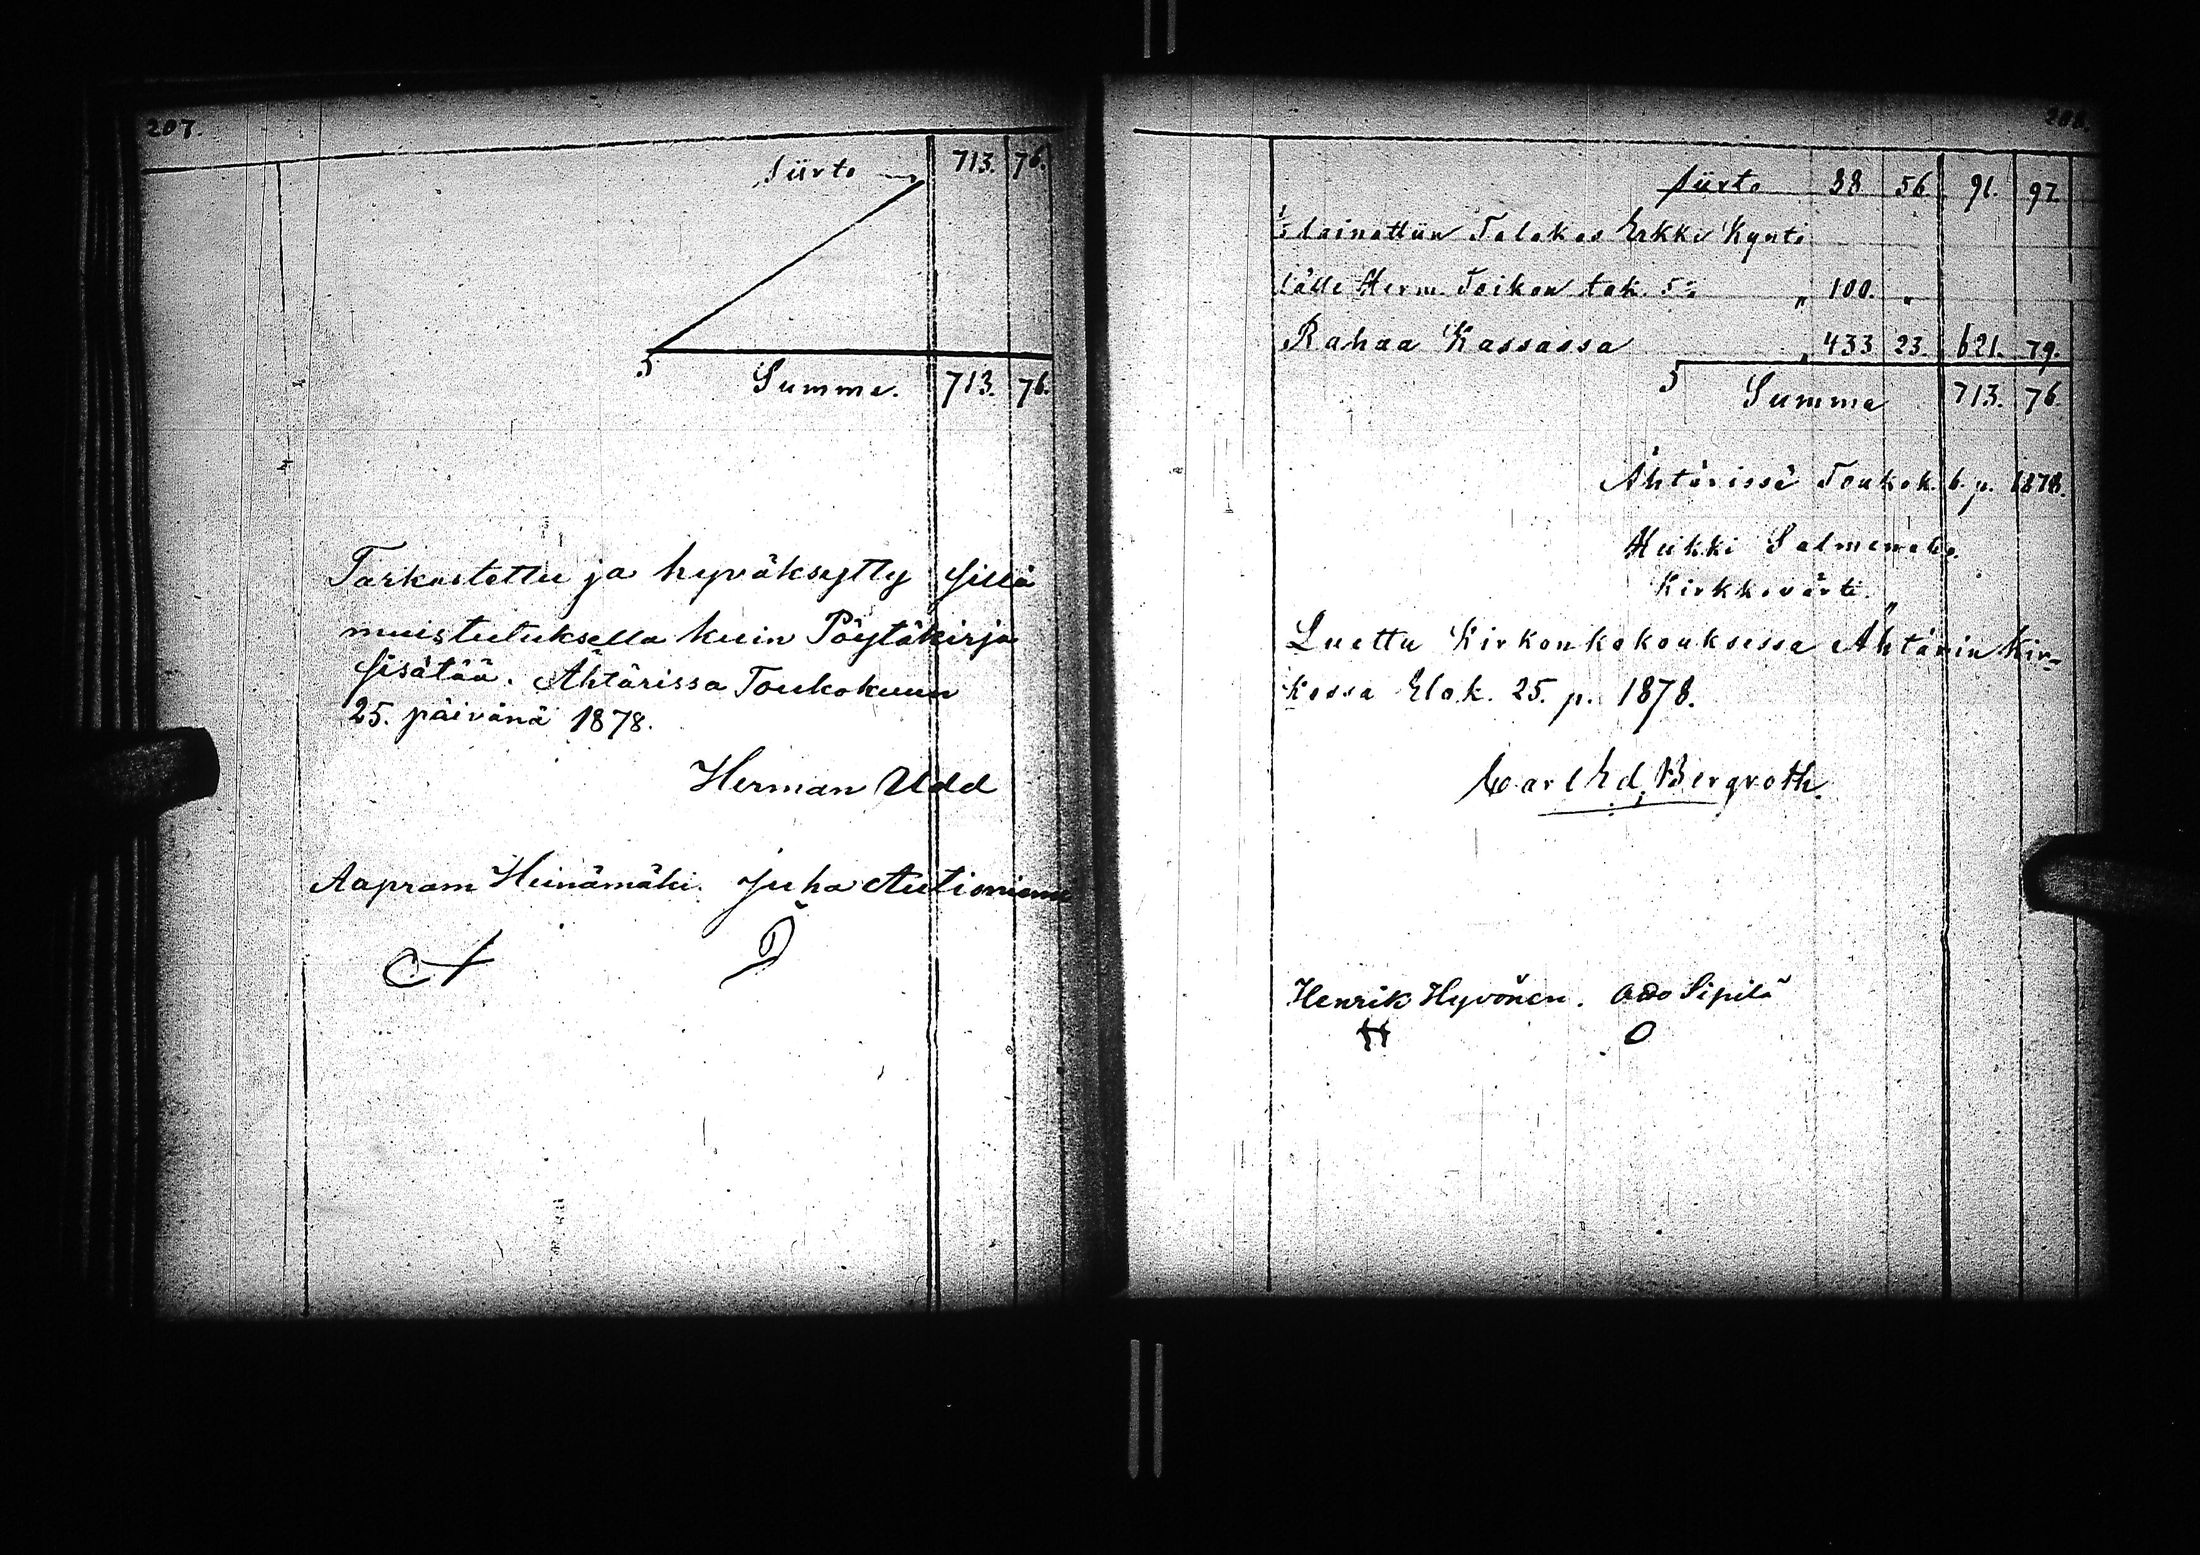 207.
Siirto 713. 76.
Summa. 713. 76.
Tarkastettu ja hyväksytty sillä
muistutuksella kuin Pöytäkirja
sisätää. Ähtärissä Toukokuun
25. päivänä 1878.
Herman Udd
Aapram Heinämäki. Juha Autioniemi
208.
Siirto 88 56 91. 97.
lainattiin Talokas Erkki Kynti
lälle Herm. Toikon tak. 5% " 100. "
Rahaa Kassassa " 433 23. 621. 79.
Summa 713. 76
Ähtärissä Toukok. 6. p. 1878.
Heikki Salmenaho.
Kirkkovärti.
Luettu Kirkonkokouksessa Ähtärin Kir-
kossa Elok. 25. p. 1878.
Carl Ed. Bergroth.
Henrik Hyvönen. Sipilä
H O